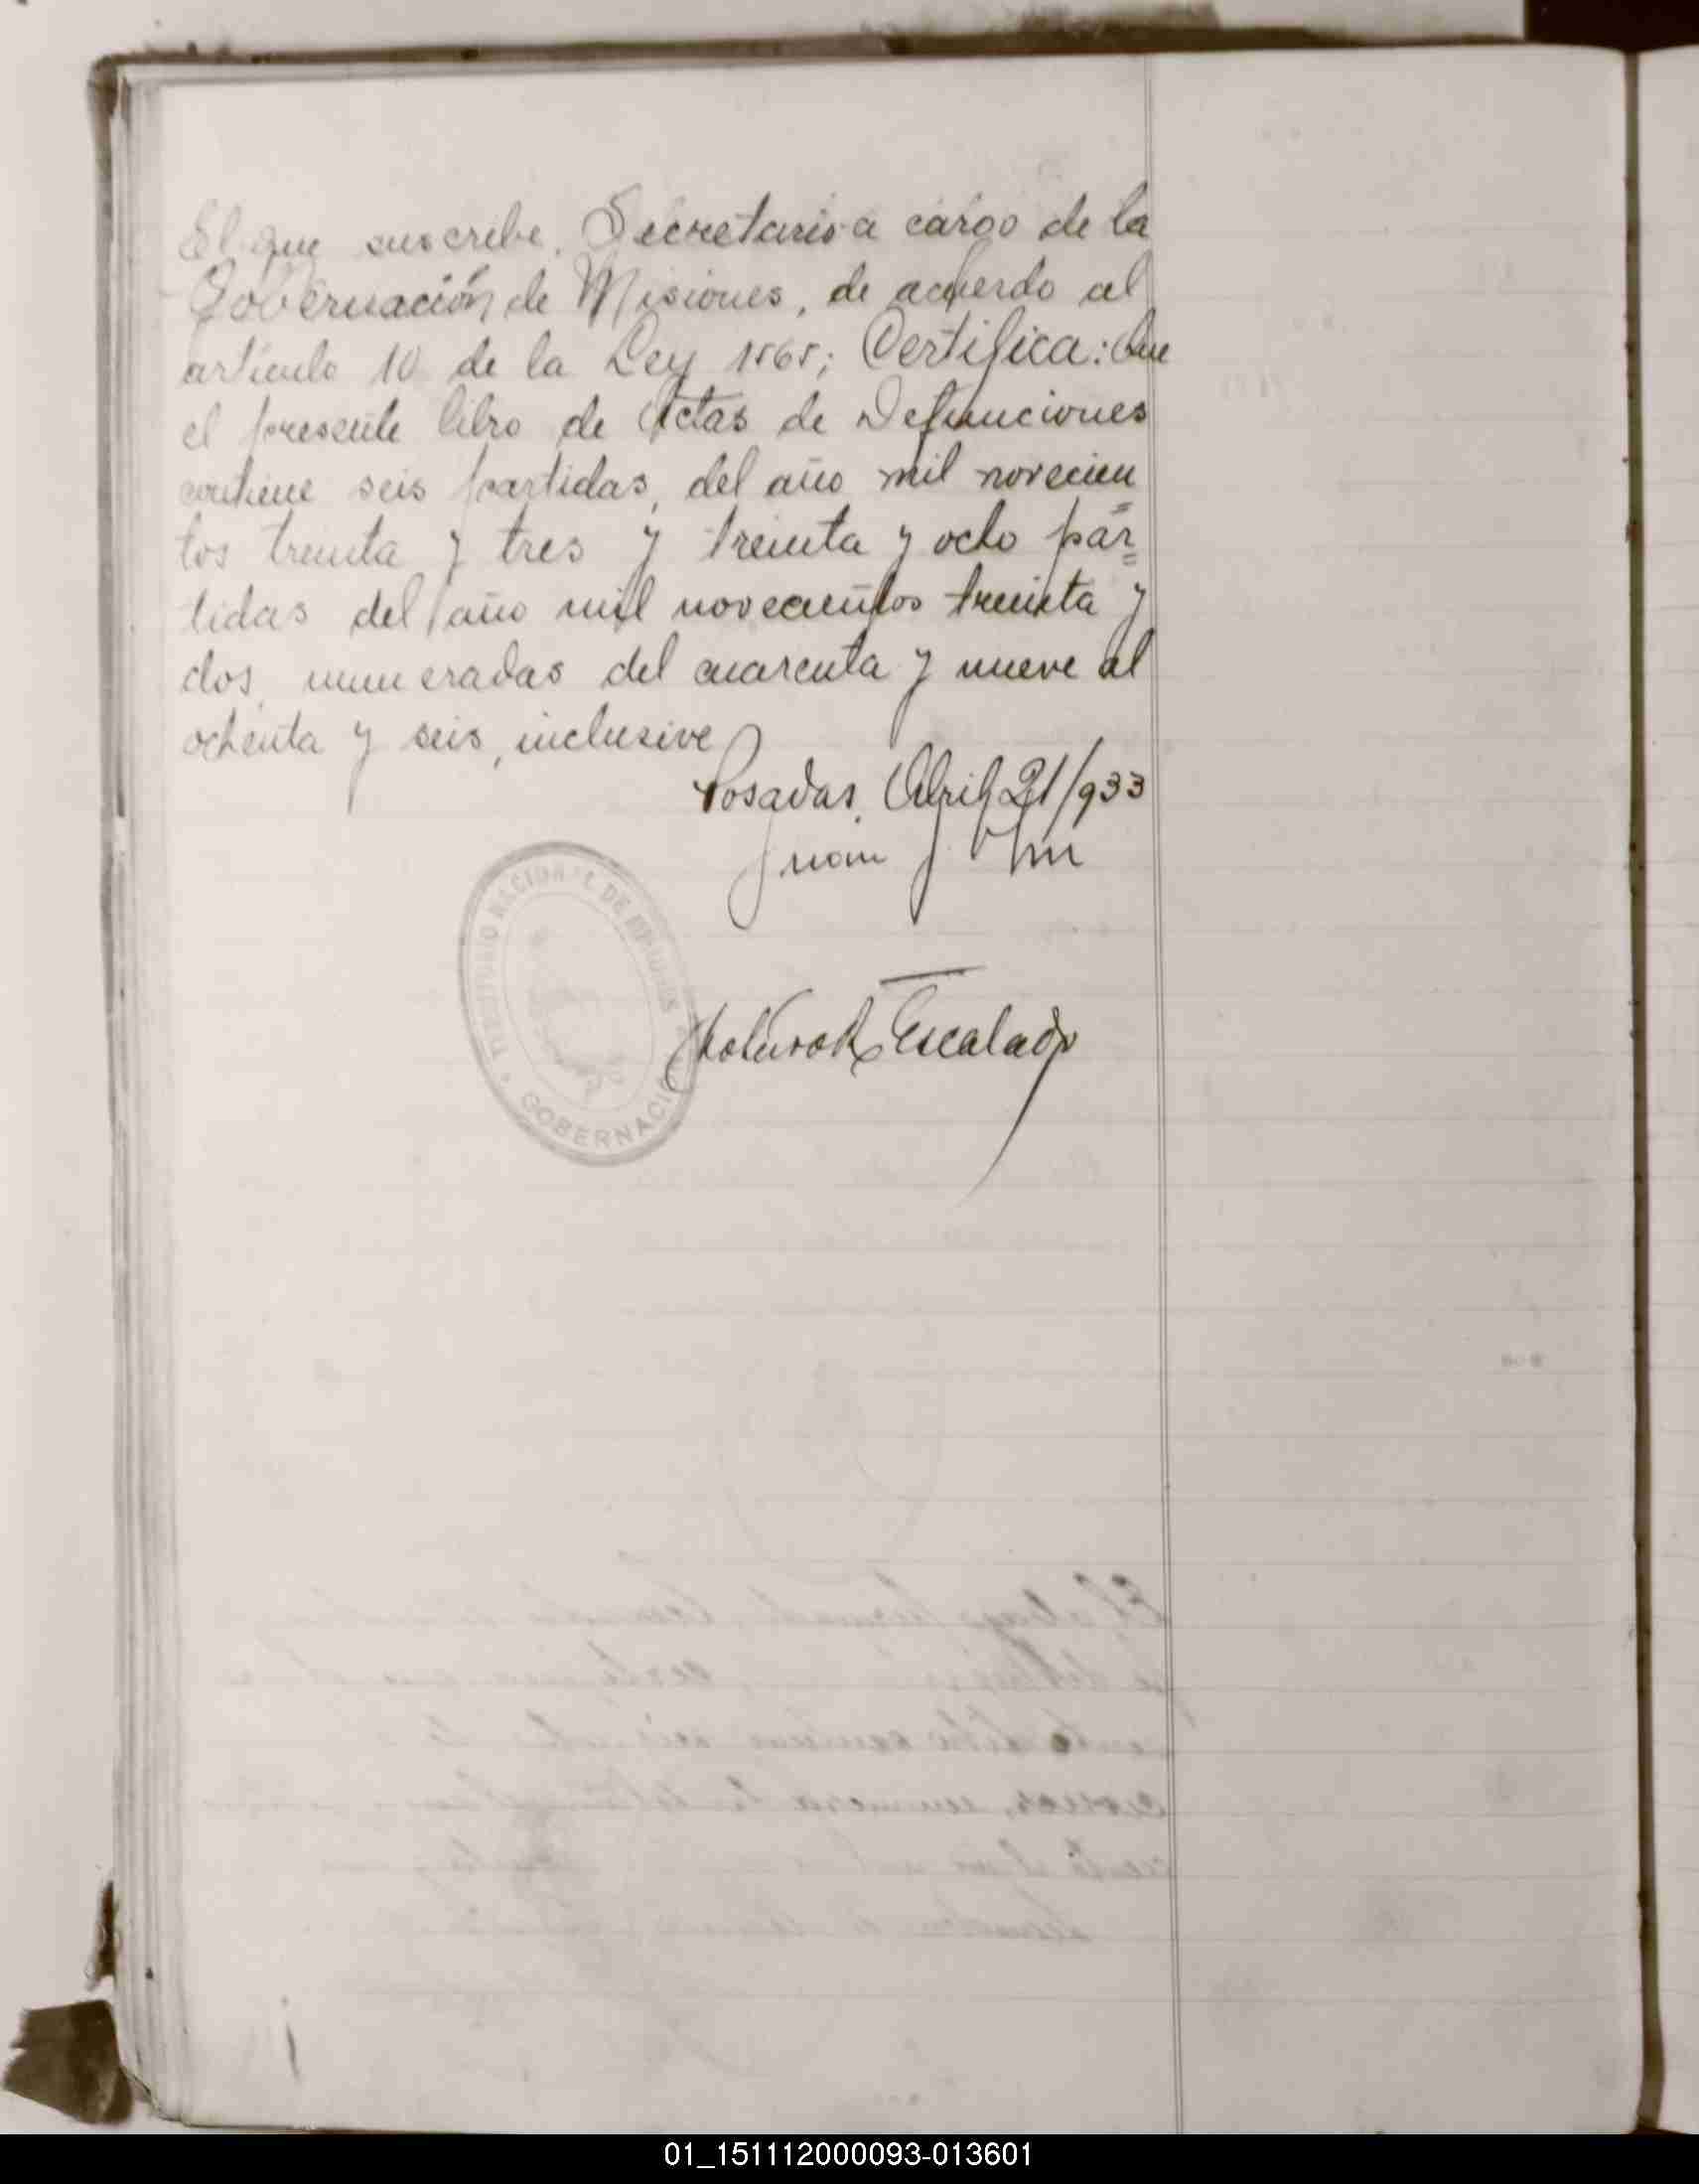 El que suscribe, Secretario a cargo de la
Gobernación de Misiones, de acuerdo al
artículo 10 de la Ley 1565; Certifica: Que
el presente libro de Actas de Defunciones
contiene seis partidas, del año mil novecien
tos treinta y tres y treinta y ocho par=
tidas del año mil novecientos treinta y
dos, numeradas del cuarenta y nueve al
ochenta y seis, inclusive
Posadas, Abril 21/933
Juan J.
Escalada
TERRITORIO NACIONAL DE MISIONES
GOBERNACIÓN
01_151112000093-013601